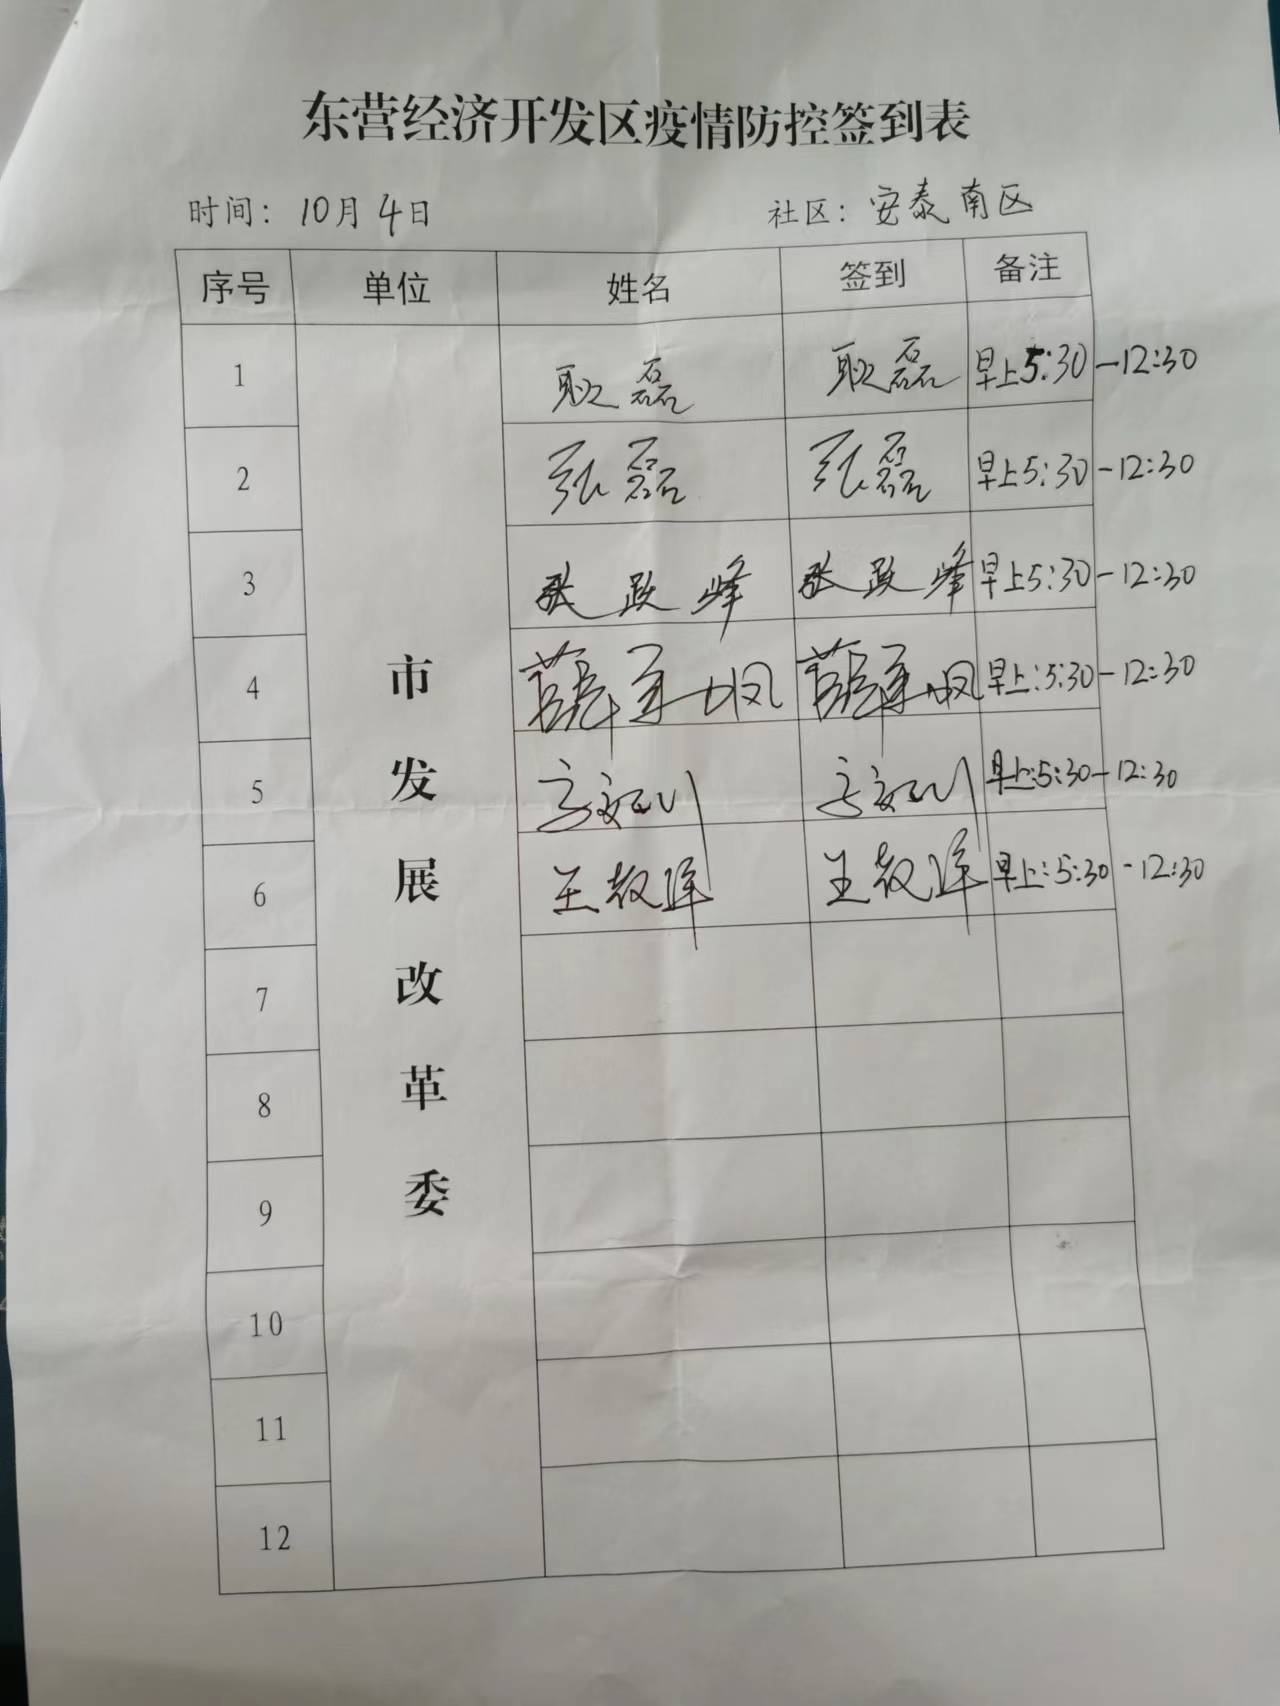 东营经济开发区疫情防控签到表
时间：10月4日 社区：安泰南区
序号 单位 姓名 签到 备注
1 耿磊 耿磊 早上5:30-12:30
2 张磊 张磊 早上5:30-12:30
3 张跃峰 张跃峰 早上5:30-12:30
4 薛 薛 早上:5:30-12:30
5 早上:5:30-12:30
6 王 王 早上:5:30-12:30
7
8
9
10
11
12
市发展改革委